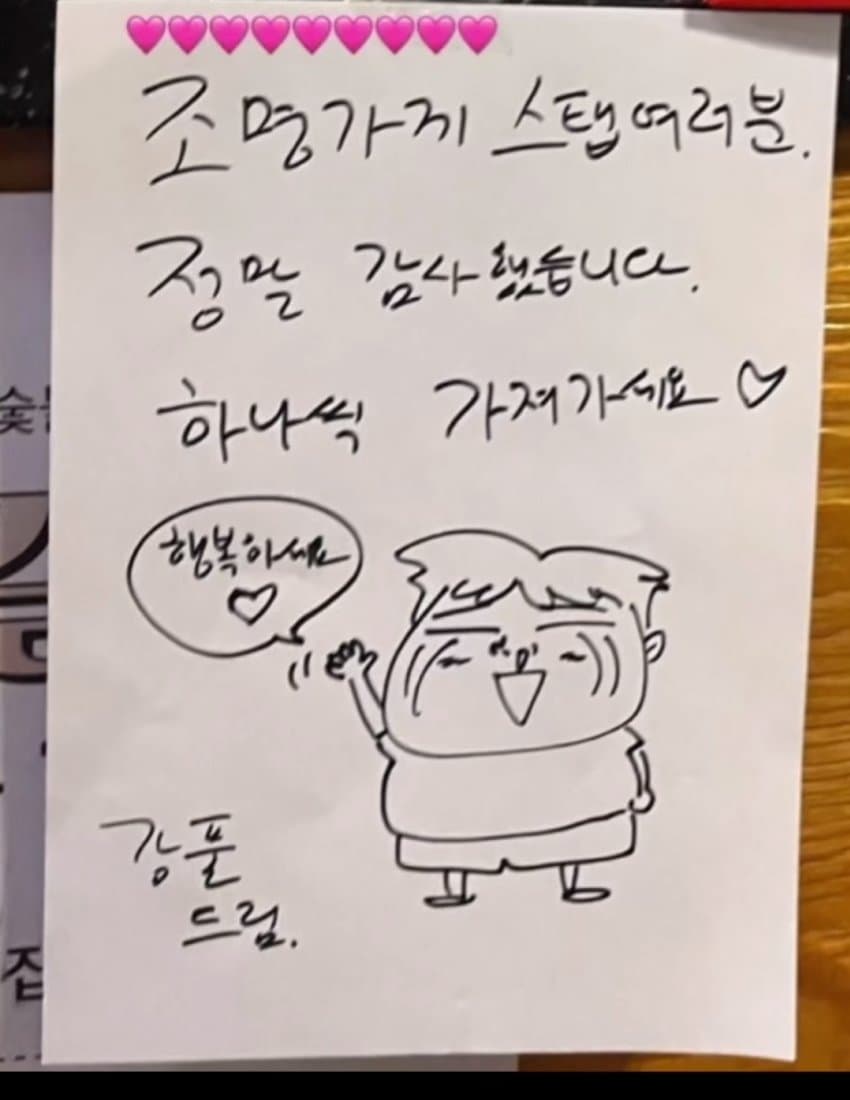 💗💗💗💗💗💗💗💗💗
조명가게 스탭여러분.
정말 감사했습니다.
하나씩 가져가세요 ♡
행복하세요
♡
강풀
드림.
숯불
집